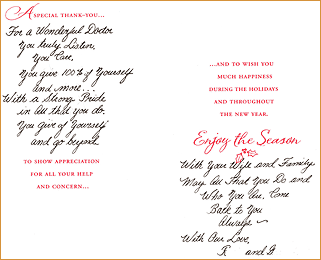 A SPECIAL THANK-YOU...
For a Wonderful Doctor
You truly Listen,
You Care,
You give 100% of Yourself
and more...
With a Strong Pride
in All that you do.
You Give of Yourself
and go beyond
TO SHOW APPRECIATION
FOR ALL YOUR HELP
AND CONCERN...
...AND TO WISH YOU
MUCH HAPPINESS
DURING THE HOLIDAYS
AND THROUGHOUT
THE NEW YEAR.
Enjoy the Season
With Your Wife and Family.
May All That You Do and
Who You Are, Come
Back to You
Always ~
With Our Love,
R and G